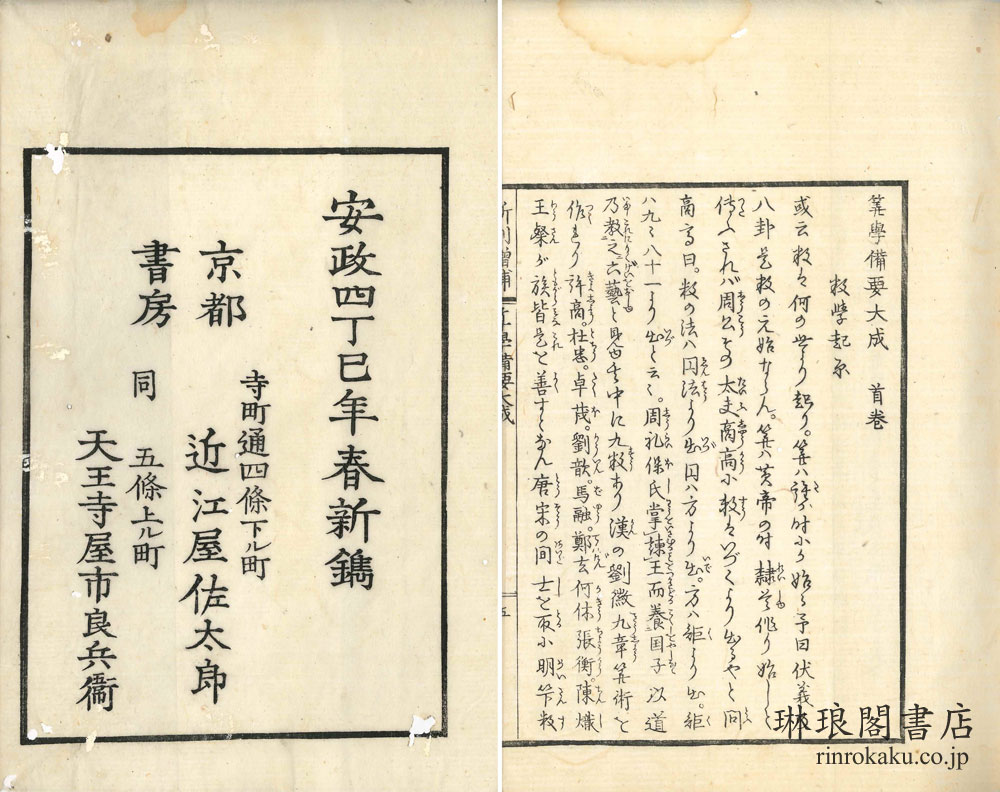 安政四丁巳年春新鐫
京都
寺町通四條下ル町
近江屋佐太郎
書房
同
五條上ル町
天王寺屋市良兵衞
筭學備要大成 首巻
数學起原
或云数ハ何の世より起り。筭ハ誰が时にか始る予曰伏羲の
八卦是数の元始ならん。筭ハ黄帝の时隷首作り始しと
傳ふされバ周公その太夫商高に数ハいづくより出るやと問
商高曰。数の法ハ円法より出円ハ方より出。方ハ矩より出。矩
八九〻八十一より出と云〻。周礼保氏掌諫王而養国子以道
乃教之六藝と見 中に九数あり漢の劉徽九章筭術を
作れり許商。杜忠。卓茂。劉歆。馬融。鄭玄何休張衡。陳熾
王粲が族皆是を善すとなん唐宋の間士を取に明筭数
新刊增補 筭學備要大成 五
琳琅閣書店
rinrokaku.co.jp